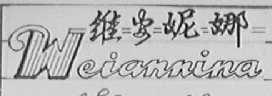 維安妮娜
Weiannina